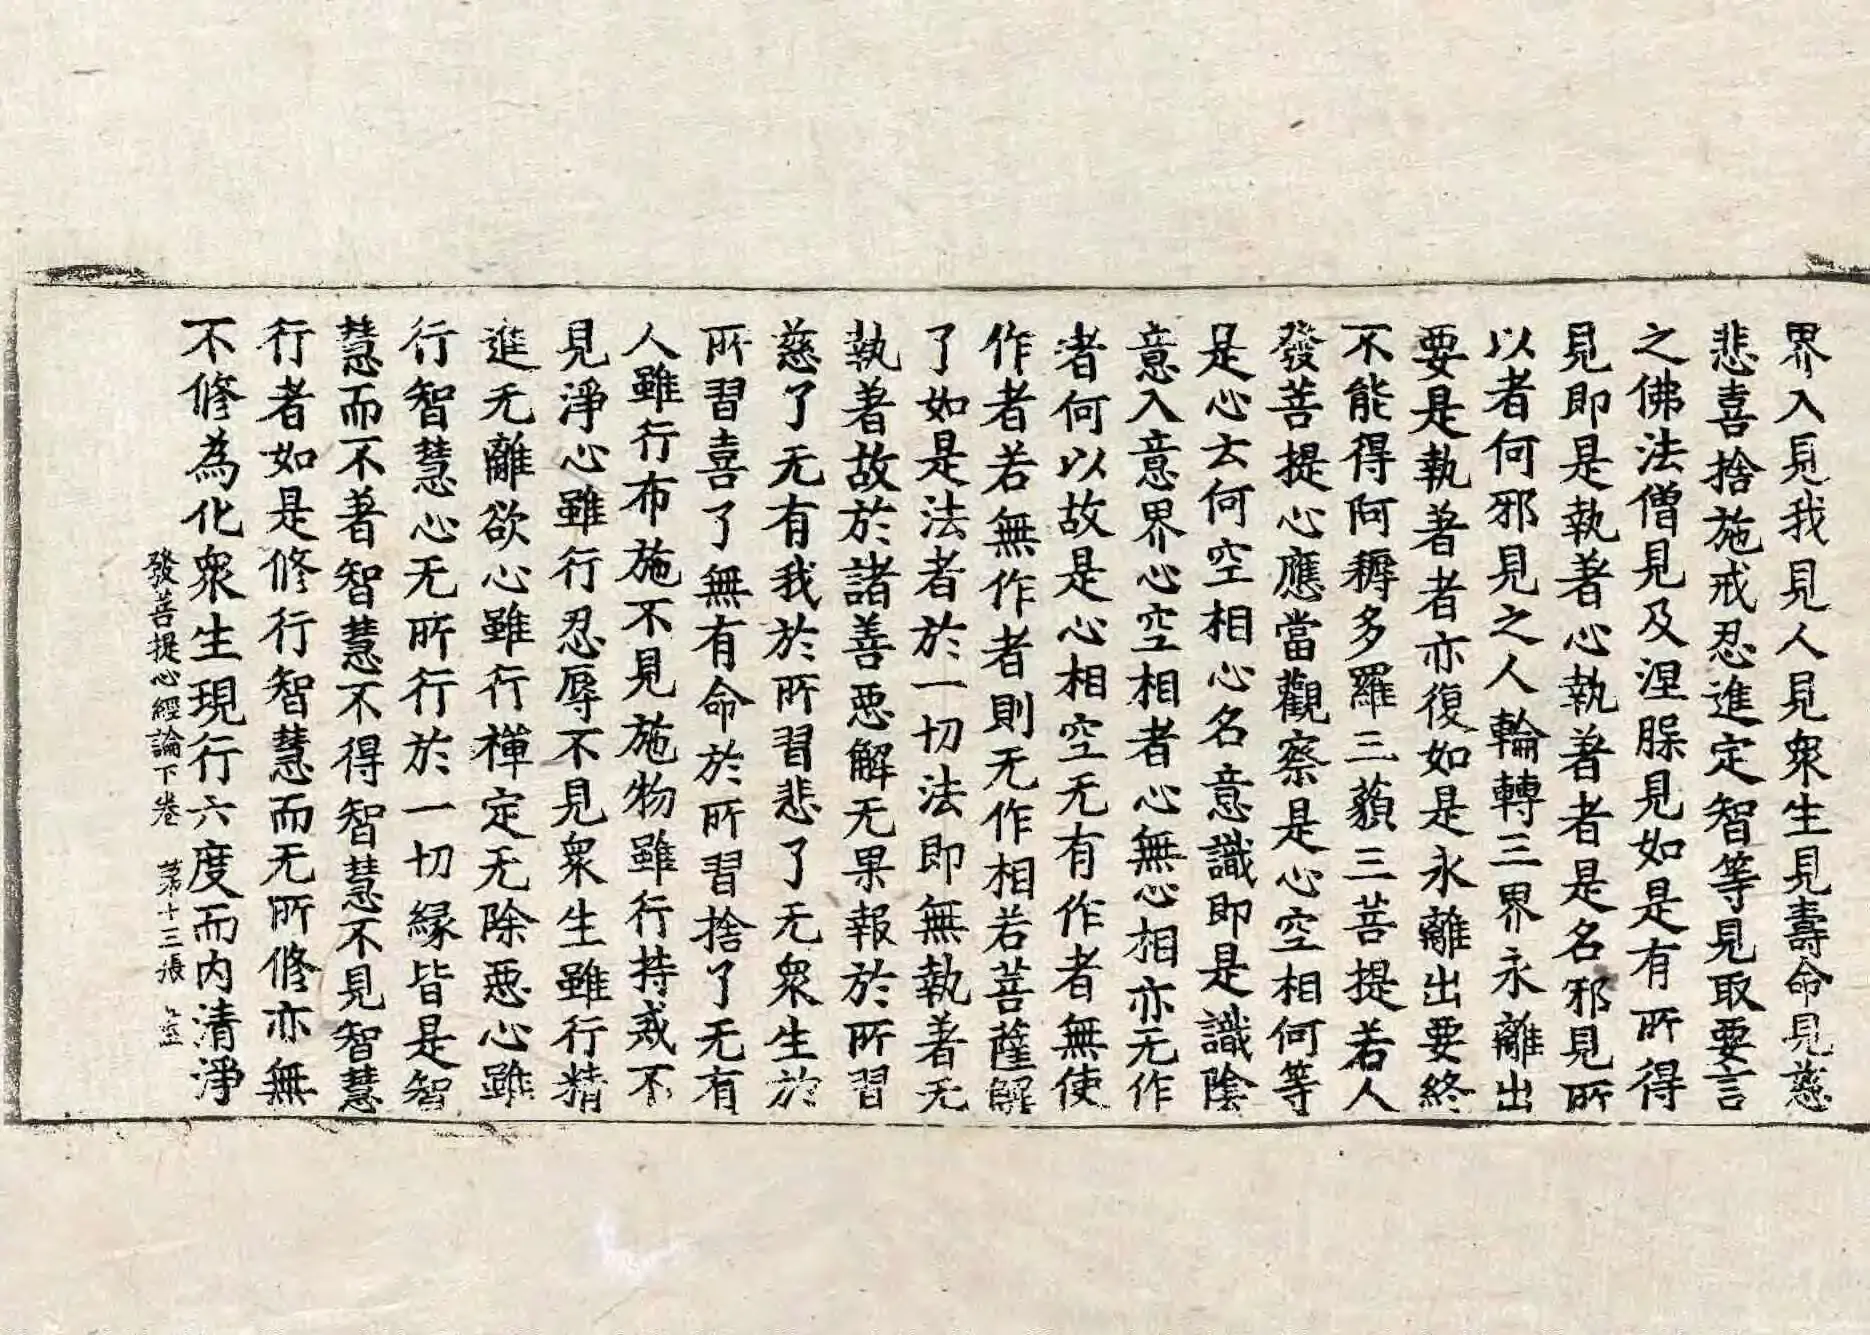 界入見我見人見衆生見壽命見慈
悲喜捨施戒忍進定智等見取要言
之佛法僧見及涅槃見如是有所得
見即是執著心執著者是名邪見所
以者何邪見之人輪轉三界永離出
要是執著者亦復如是永離出要終
不能得阿耨多羅三藐三菩提若人
發菩提心應當觀察是心空相何等
是心云何空相心名意識即是識陰
意入意界心空相者心無心相亦无作
者何以故是心相空无有作者無使
作者若無作者則无作相若菩薩解
了如是法者於一切法即無執著无
執著故於諸善惡解无果報於所習
慈了无有我於所習悲了无衆生於
所習喜了無有命於所習捨了无有
人雖行布施不見施物雖行持戒不
見淨心雖行忍辱不見衆生雖行精
進无離欲心雖行禪定无除惡心雖
行智慧心无所行於一切緣皆是智
慧而不著智慧不得智慧不見智慧
行者如是修行智慧而无所修亦無
不修為化衆生現行六度而内清淨
發菩提心經論下卷 第十三張